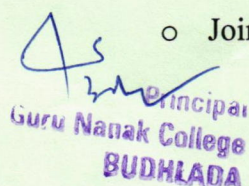 ○ Join
Principal
Guru Nanak College
BUDHLADA